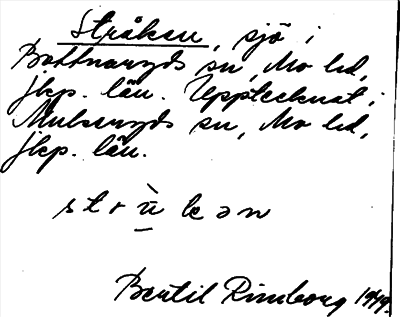 Stråken, sjö i
Bottnaryds sn, Mo hd,
Jkp. län. Upptecknat i
Mulseryds sn, Mo hd,
Jkp. län.
Bertil Rimborg 1949.